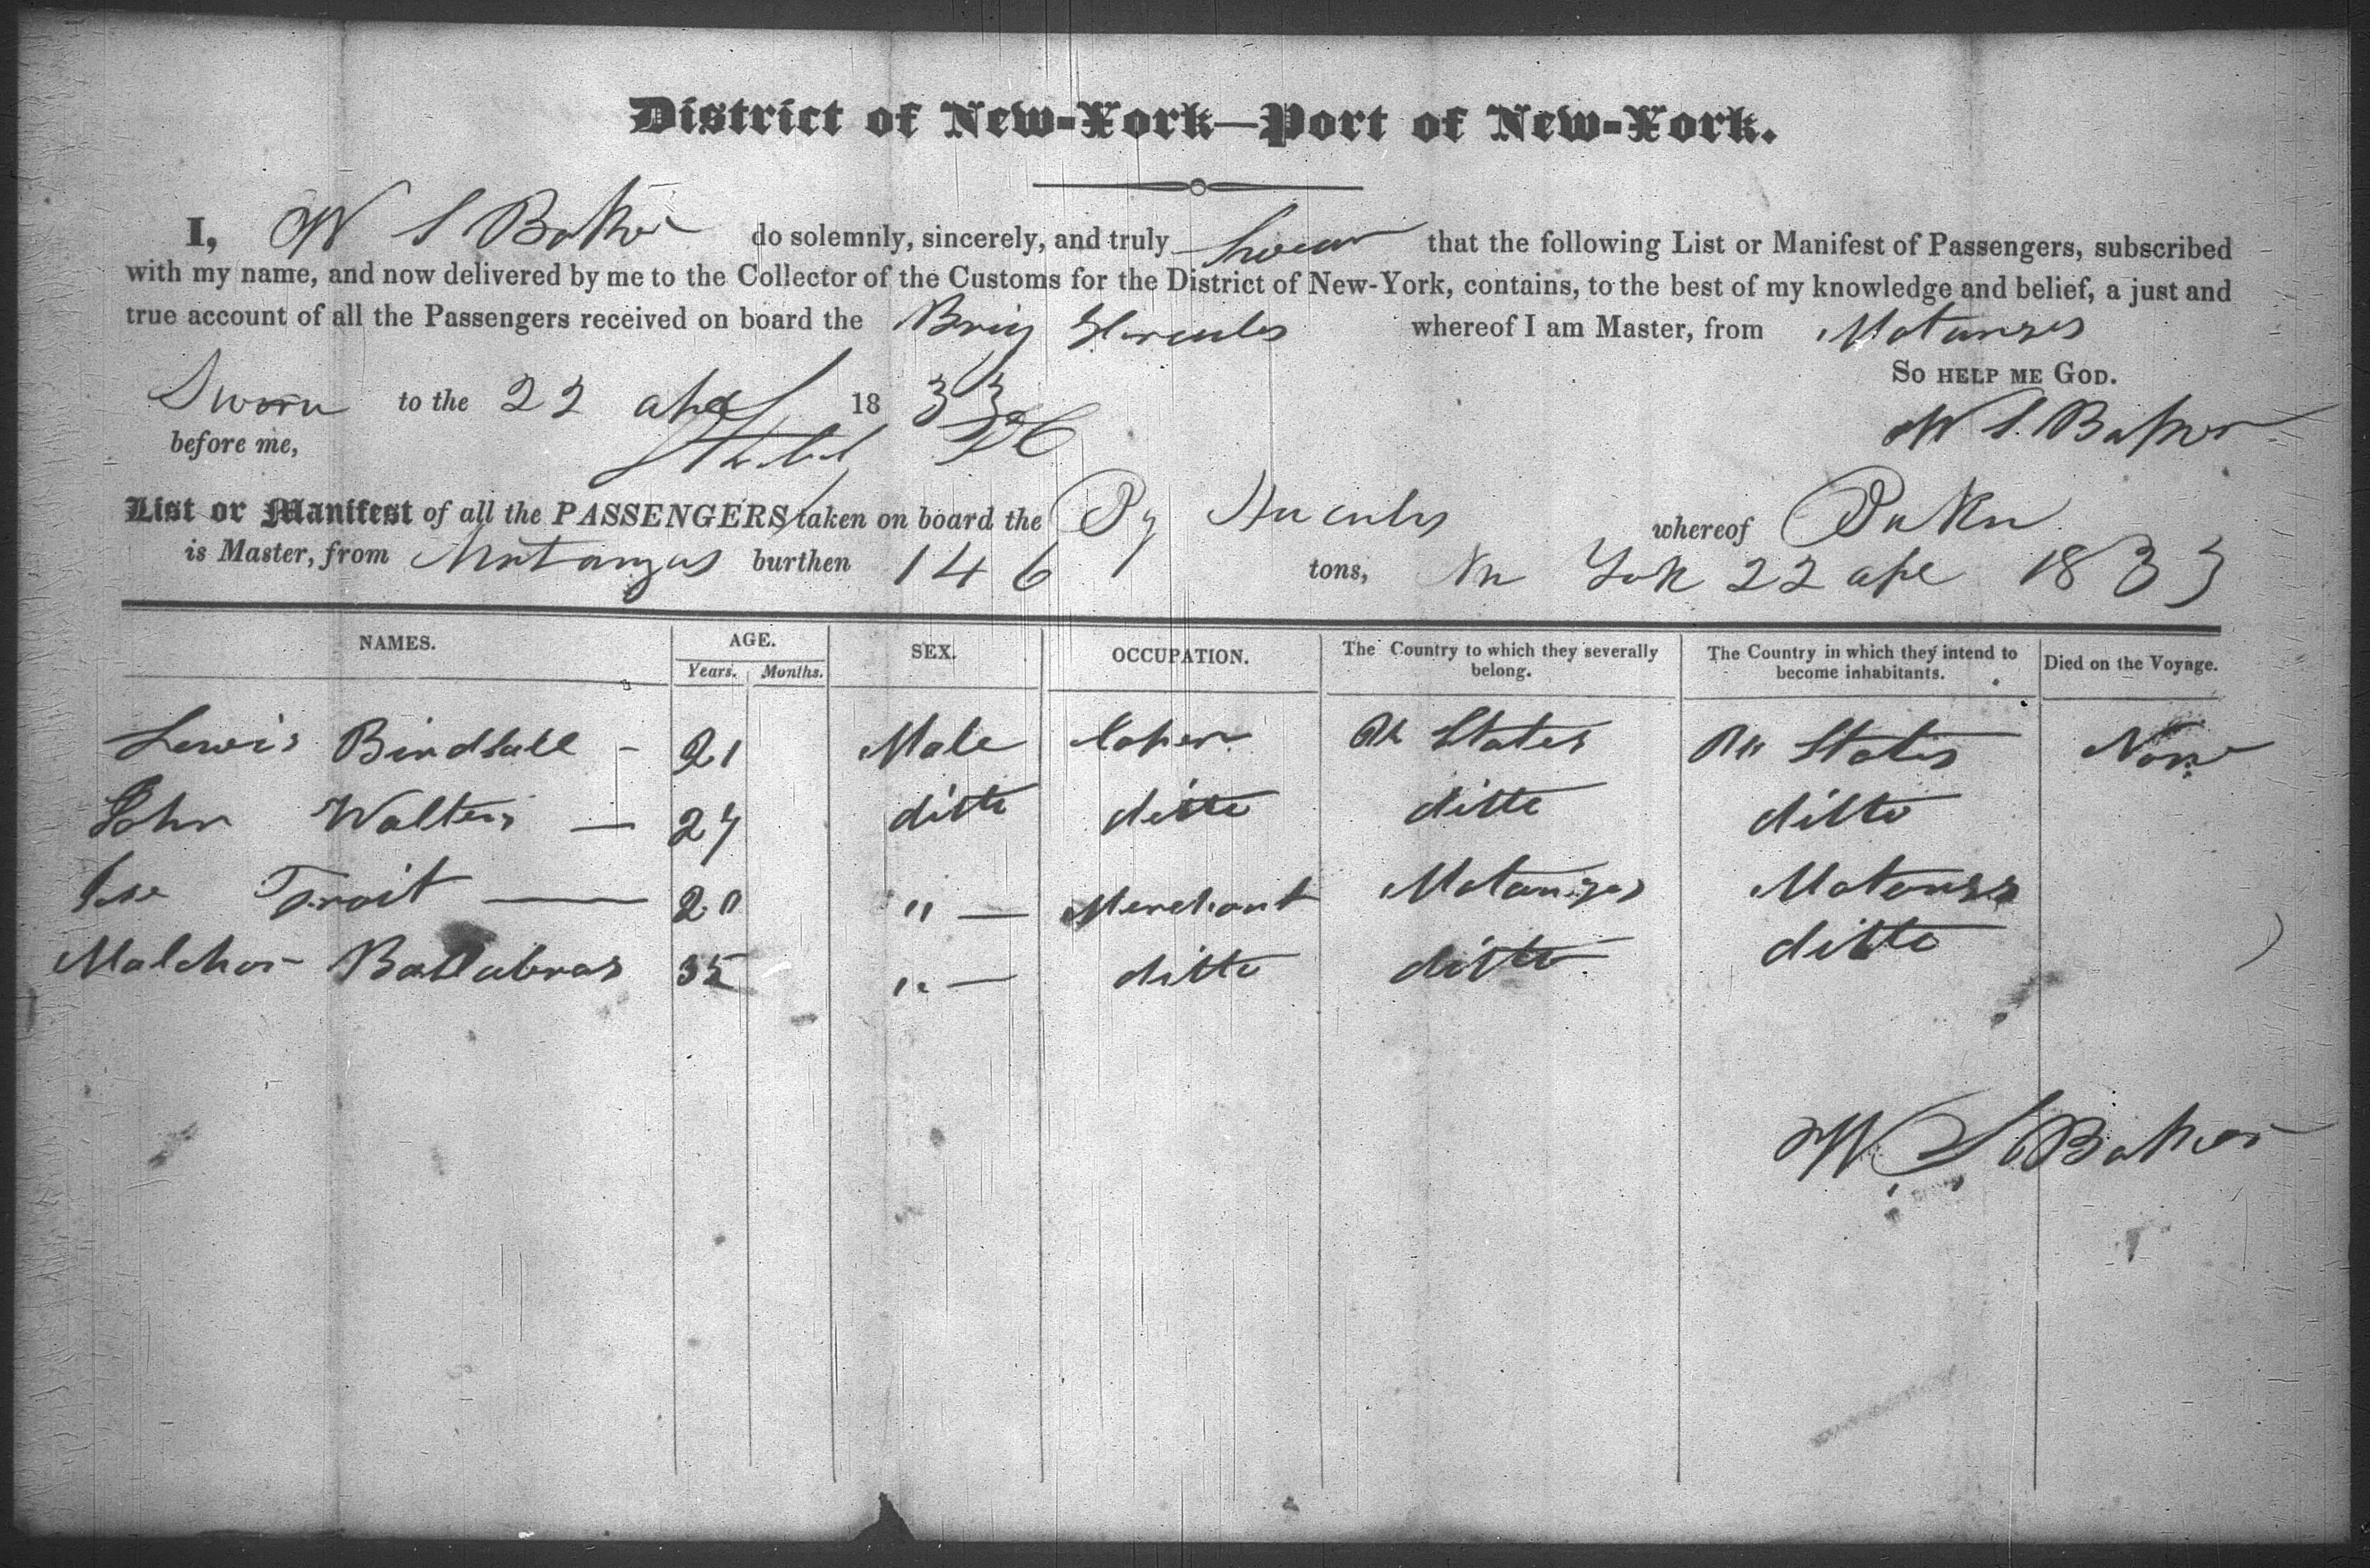 District of New-York—Port of New-York.
I, W S Baker do solemnly, sincerely, and truly swear that the following List or Manifest of Passengers, subscribed
with my name, and now delivered by me to the Collector of the Customs for the District of New-York, contains, to the best of my knowledge and belief, a just and
true account of all the Passengers received on board the Brig Hercules whereof I am Master, from Matanzas
So help me God.
Sworn to the 22 apl 1833
before me,
W S. Baker
List or Manifest of all the PASSENGERS taken on board the Bg Hercules whereof Baker
is Master, from Matanzas burthen 146 tons, New York 22 apl 1833
NAMES. AGE. SEX. OCCUPATION. The Country to which they severally belong. The Country in which they intend to become inhabitants. Died on the Voyage.
Years. Months.
Lewis Birdsall - 21 Male Coper States States None
John Walters — 27 ditto ditto ditto ditto
Jose — 20 " — Merchant Matanzas Matanzas
Malchor 35 " — ditto ditto ditto
W S Baker